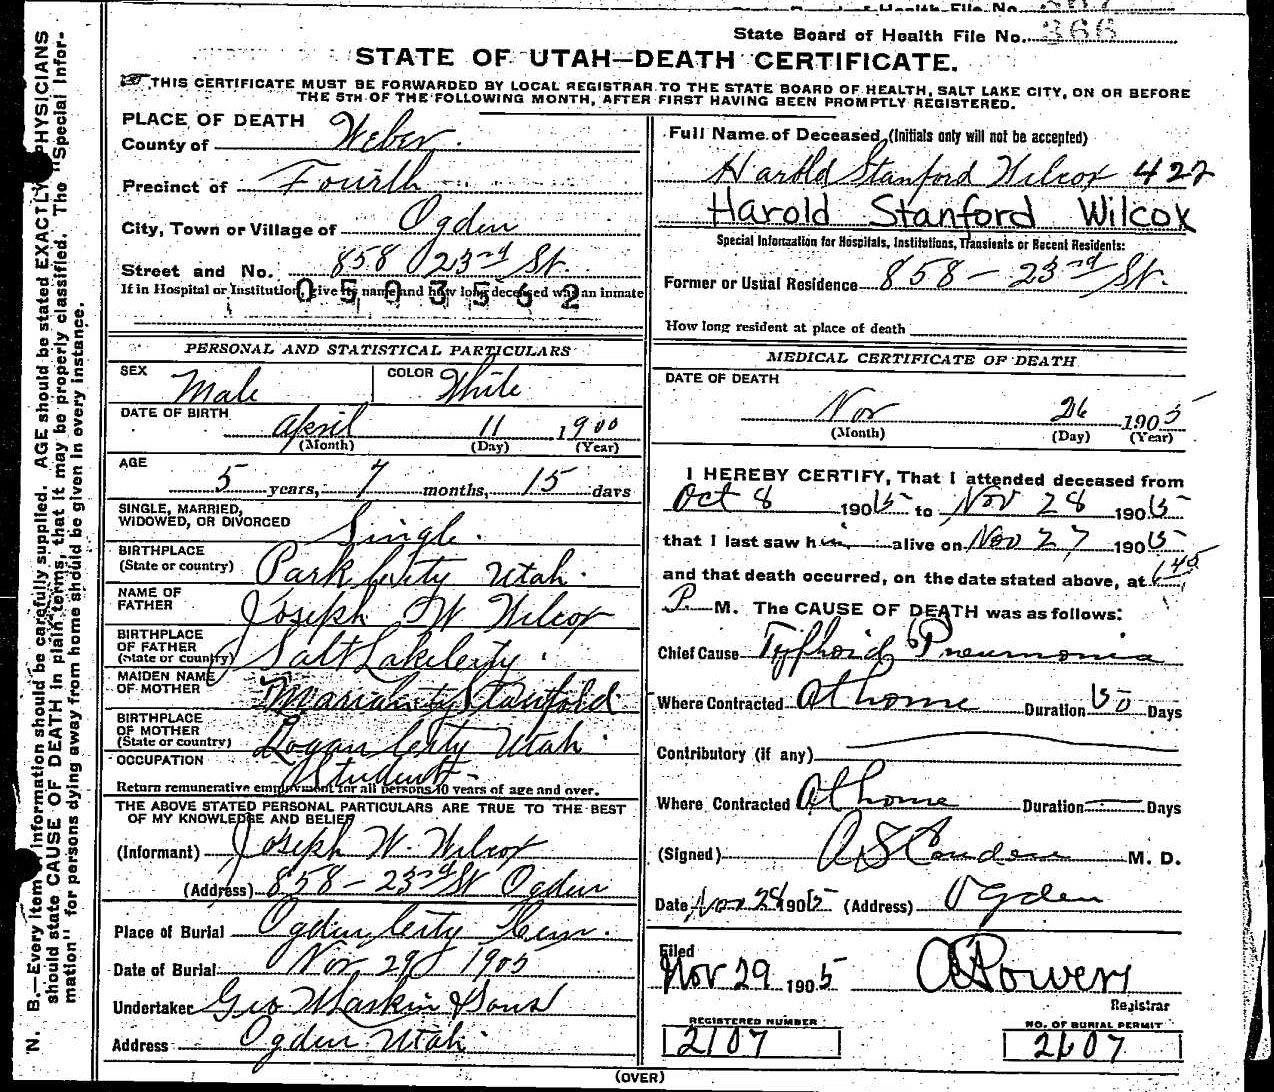 State Board of Health File No. 366
STATE OF UTAH—DEATH CERTIFICATE.
THIS CERTIFICATE MUST BE FORWARDED BY LOCAL REGISTRAR TO THE STATE BOARD OF HEALTH, SALT LAKE CITY, ON OR BEFORE
THE 5TH OF THE FOLLOWING MONTH, AFTER FIRST HAVING BEEN PROMPTLY REGISTERED.
N. B.—Every item information should be carefully supplied. AGE should be stated EXACTLY. PHYSICIANS
should state CAUSE OF DEATH in plain terms, that it may be properly classified. The "Special Infor-
mation" for persons dying away from home should be given in every instance.
PLACE OF DEATH
County of Weber
Precinct of Fourth
City, Town or Village of Ogden
Street and No. 858 23rd St.
If in Hospital or Institution, give its name and how long deceased was an inmate
0503562
PERSONAL AND STATISTICAL PARTICULARS
SEX Male COLOR White
DATE OF BIRTH April 11 1900
(Month) (Day) (Year)
AGE
5 years, 7 months, 15 days
SINGLE, MARRIED,
WIDOWED, OR DIVORCED Single.
BIRTHPLACE
(State or country) Park City Utah.
NAME OF
FATHER Joseph W Wilcox
BIRTHPLACE
OF FATHER
(State or country) Salt Lake City.
MAIDEN NAME
OF MOTHER Stanford
BIRTHPLACE
OF MOTHER
(State or country) Logan City Utah.
OCCUPATION Student
Return remunerative employment for all persons 10 years of age and over.
THE ABOVE STATED PERSONAL PARTICULARS ARE TRUE TO THE BEST
OF MY KNOWLEDGE AND BELIEF
(Informant) Joseph W. Wilcox
(Address) 858 - 23rd St Ogden
Place of Burial Ogden City Cem.
Date of Burial Nov 29 1905
Undertaker Geo W Larkin & Sons
Address Ogden Utah.
Full Name of Deceased (Initials only will not be accepted)
Harold Stanford Wilcox 422
Harold Stanford Wilcox
Special Information for Hospitals, Institutions, Transients or Recent Residents:
Former or Usual Residence 858 - 23rd St.
How long resident at place of death
MEDICAL CERTIFICATE OF DEATH
DATE OF DEATH
Nov 26 1905
(Month) (Day) (Year)
I HEREBY CERTIFY, That I attended deceased from
Oct 8 1905 to Nov 28 1905
that I last saw him alive on Nov 27 1905
and that death occurred, on the date stated above, at 1 45
P. M. The CAUSE OF DEATH was as follows:
Chief Cause Typhoid Pneumonia
Where Contracted At home Duration 50 Days
Contributory (if any)
Where Contracted At home Duration — Days
(Signed) A S Condon M. D.
Date Nov 28 1905 (Address) Ogden
Filed
Nov 29 1905 Powers
Registrar
REGISTERED NUMBER
2107
NO. OF BURIAL PERMIT
2607
(OVER)